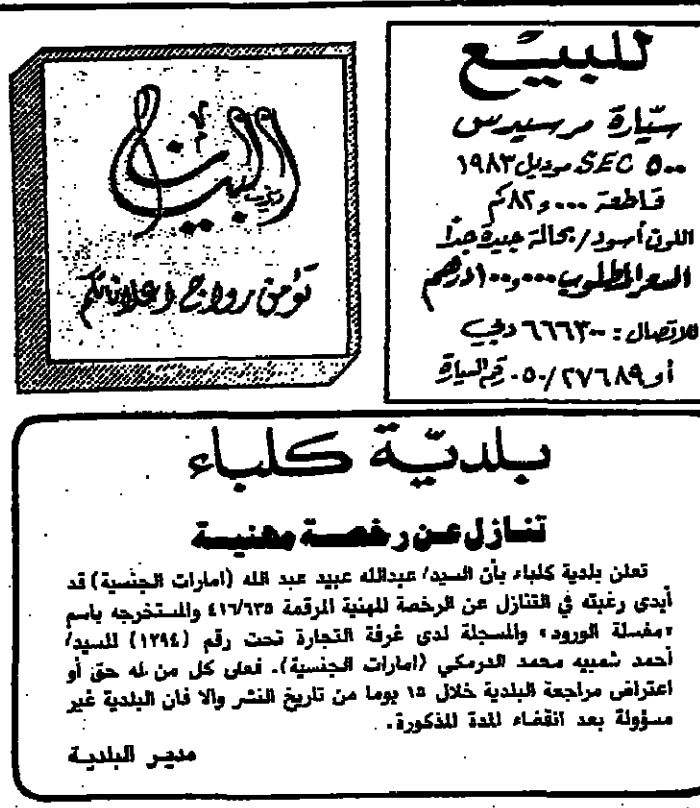 للبيع
سيّارة مرسيدس
٥٠٠ SEC موديل ١٩٨٣
قاطعة ٨٢٫٠٠٠ كم
اللون أسود / بحالة جيدة جداً
السعر المطلوب ١٠٠٫٠٠٠ درهم
للاتصال: ٦٦٦٣٠٠ دبي
أو ٠٥٠/٢٧٦٨٩ رقم السيارة
البيان
دبي
تؤمن رواج اعلاناتكم
بلديّة كلباء
تنازل عن رخصة مهنية
تعلن بلدية كلباء بأن السيد/ عبدالله عبيد عبد الله (امارات الجنسية) قد
أبدى رغبته في التنازل عن الرخصة المهنية المرقمة ٤١٦/٦٣٥ والمستخرجه باسم
«مغسلة الورود» والمسجلة لدى غرفة التجارة تحت رقم (١٢٩٤) للسيد/
أحمد شمبيه محمد الدرمكي (امارات الجنسية). فعلى كل من له حق أو
اعتراض مراجعة البلدية خلال ١٥ يوما من تاريخ النشر والا فان البلدية غير
مسؤولة بعد انقضاء المدة المذكورة.
مدير البلدية